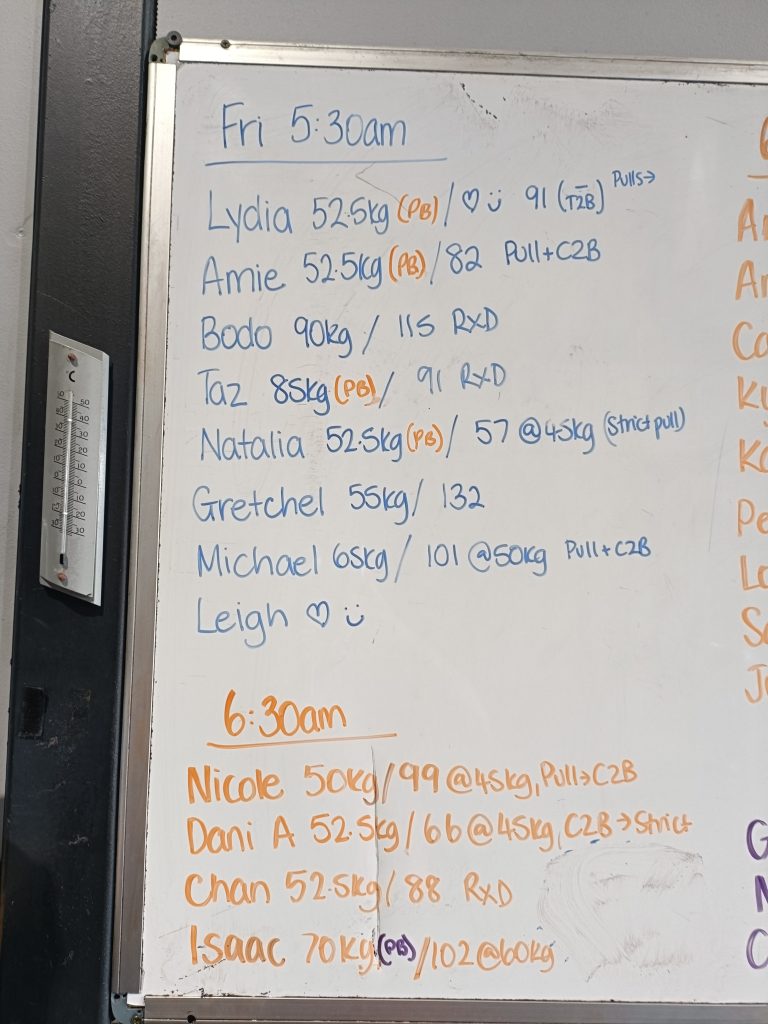 Fri 5:30am
Lydia 52.5kg (PB) / ♡ ü 91 (T2B) Pulls→
Amie 52.5kg (PB) / 82 Pull+C2B
Bodo 90kg / 115 RxD
Taz 85kg (PB) / 91 RxD
Natalia 52.5kg (PB) / 57 @45kg (Strict pull)
Gretchel 55kg / 132
Michael 65kg / 101 @50kg Pull+C2B
Leigh ♡ ü
6:30am
Nicole 50kg / 99 @45kg, Pull→C2B
Dani A 52.5kg / 66 @45kg, C2B→Strict
Chan 52.5kg / 88 RxD
Isaac 70kg (PB) / 102 @60kg